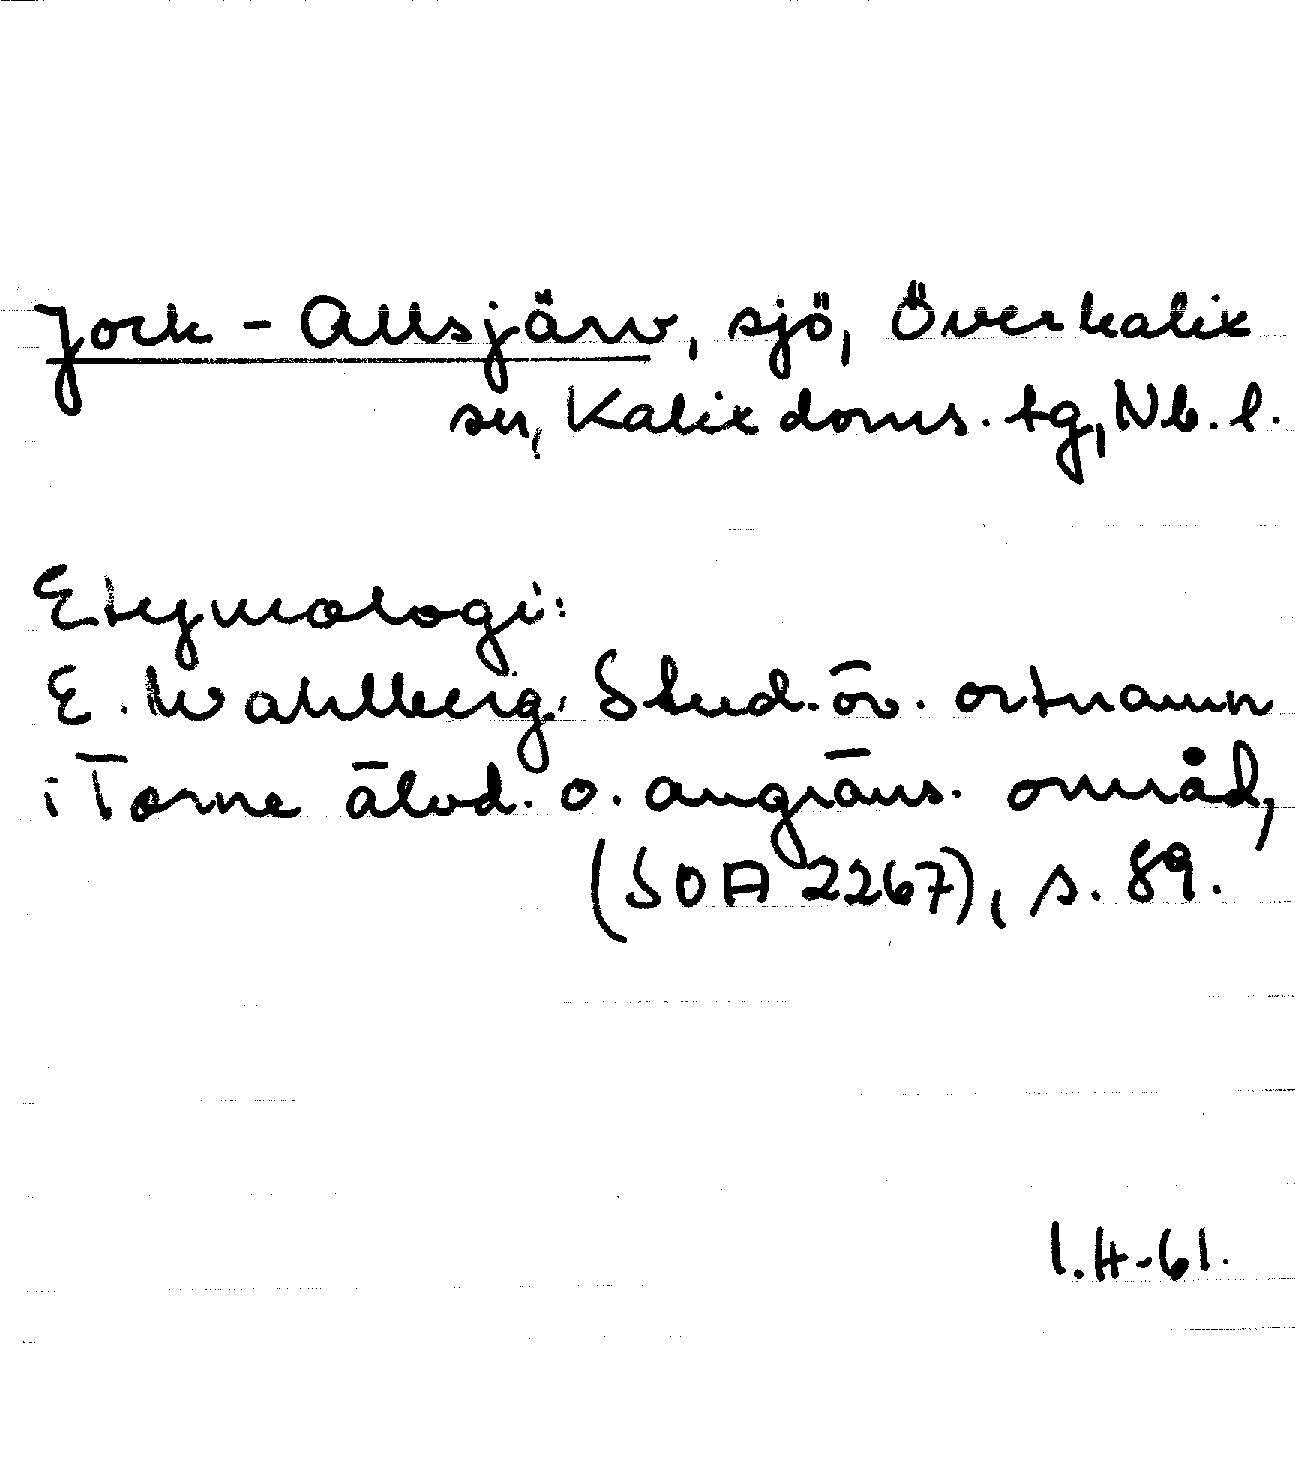 Jock-Allsjärv, sjö, Överkalix
sn, Kalix doms. tg, Nb. l.
Etymologi:
E. Wahlberg, Stud. öv. ortnamn
i Torne älvd. o. angräns. områd,
(SOA 2267), s. 89.
I.H-61.